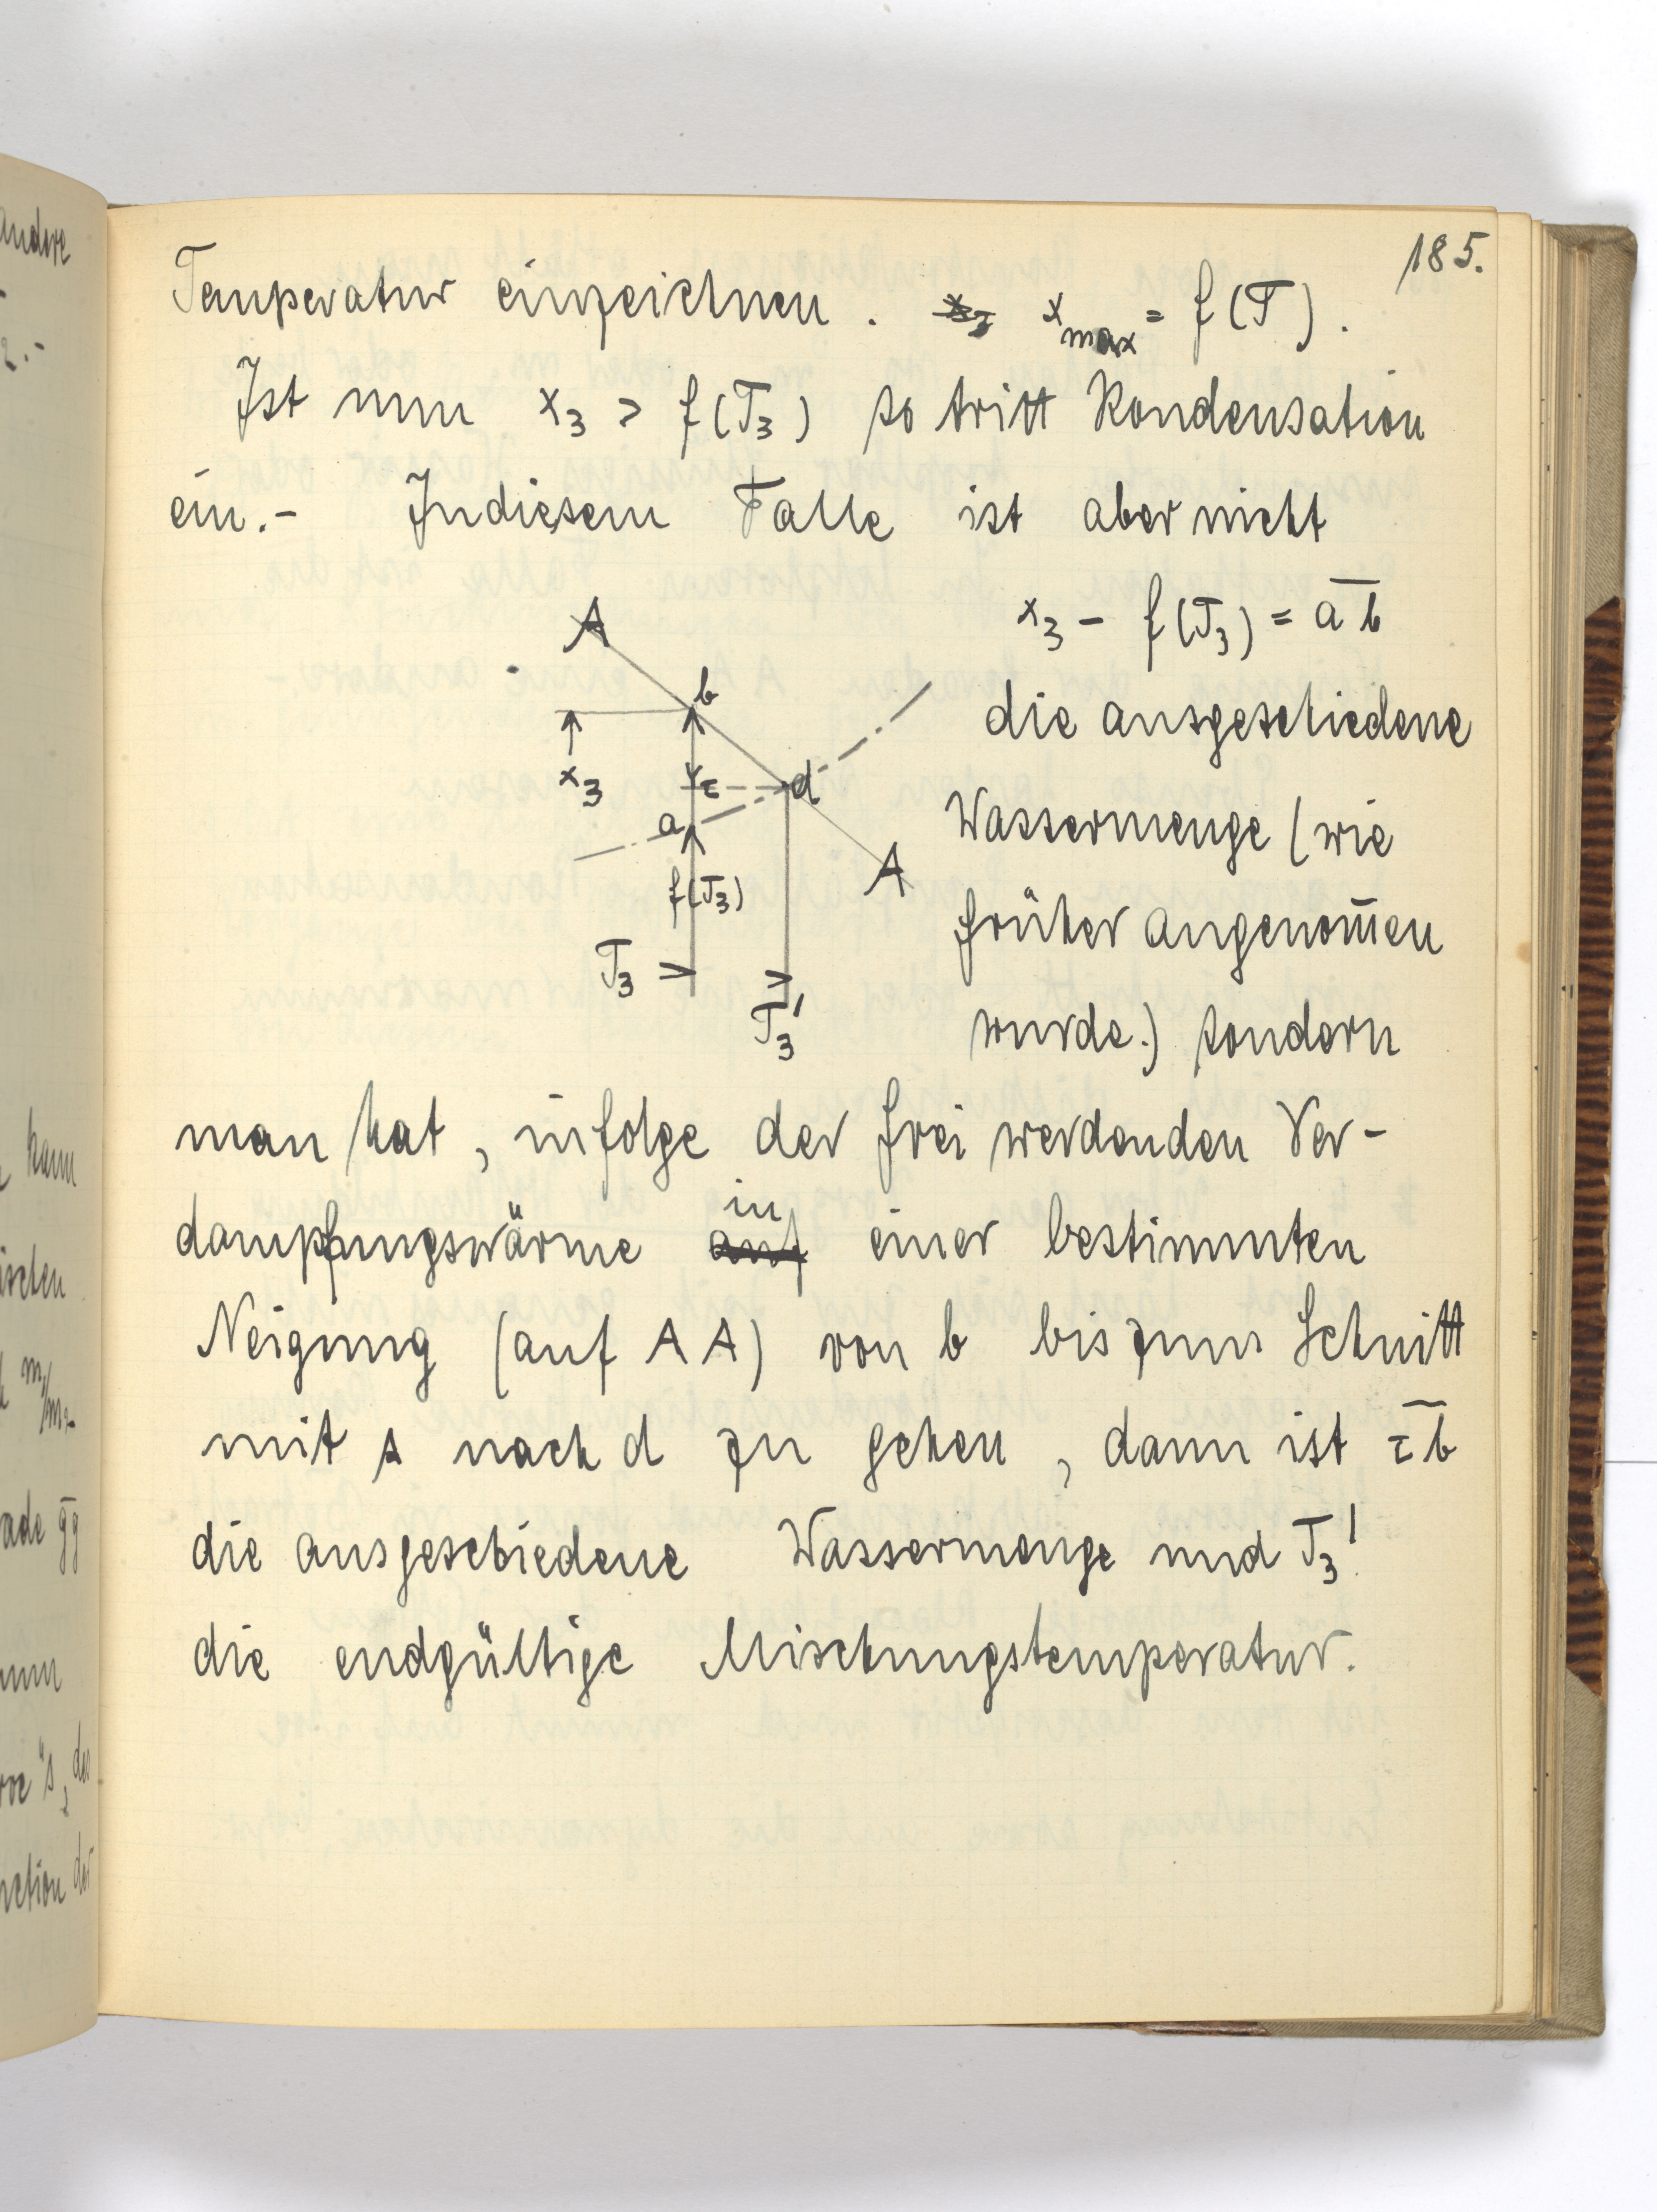 185.
Temperatur einzeichnen. x₃ x_max = f(T).
Ist nun x₃ > f(T₃) so tritt Kondensation
ein.- In diesem Falle ist aber nicht
x₃ - f(T₃) = a̅b̅
die ausgeschiedene
Wassermenge (wie
früher angenom̅en
wurde.) sondern
A
b
x₃
c
d
a
A
f(T₃)
T₃
T₃'
man hat, infolge der frei werdenden Ver-
in
dampfungswärme auf einer bestimmten
Neigung (auf AA) von b bis zum Schnitt
mit s nach d zu gehen, dann ist c̅b̅
die ausgeschiedene Wassermenge und T₃'
die endgültige Mischungstemperatur.
andere
2.-
kann
ischen
m₁/m₂
ade g̅g̅
s, der
der